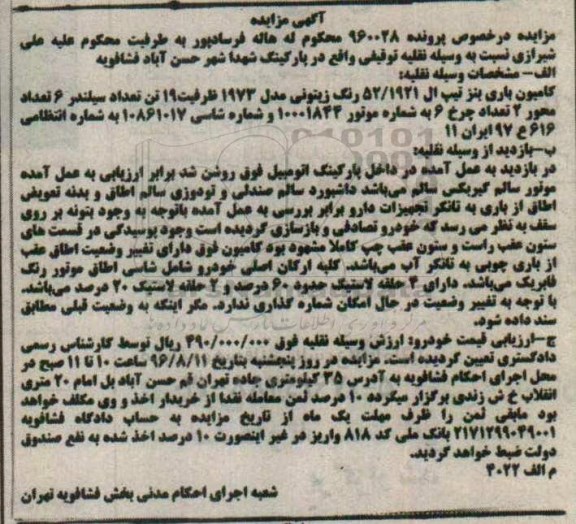 آگهی مزایده
مزایده درخصوص پرونده ۹۶۰۰۲۸ محکوم له هاله فرسادپور به طرفیت محکوم علیه علی
شیرازی نسبت به وسیله نقلیه توقیفی واقع در پارکینگ شهدا شهر حسن آباد فشافویه
الف- مشخصات وسیله نقلیه:
کامیون باری بنز تیپ ال ۵۲/۱۹۲۱ رنگ زیتونی مدل ۱۹۷۳ ظرفیت۱۹ تن تعداد سیلندر ۶ تعداد
محور ۲ تعداد چرخ ۶ به شماره موتور ۱۰۰۰۱۸۴۴ و شماره شاسی ۱۰۸۶۱۰۱۷ به شماره انتظامی
۶۱۶ ع ۹۷ ایران ۱۱
ب-بازدید از وسیله نقلیه:
در بازدید به عمل آمده در داخل پارکینگ اتومبیل فوق روشن شد برابر ارزیابی به عمل آمده
موتور سالم گیربکس سالم می‌باشد داشبورد سالم صندلی و تودوزی سالم اطاق و بدنه تعویض
اطاق از باری به تانکر تجهیزات دارو برابر بررسی به عمل آمده باتوجه به وجود بتونه بر روی
سقف به نظر می رسد که خودرو تصادفی و بازسازی گردیده است وجود پوسیدگی در قسمت های
ستون عقب راست و ستون عقب چپ کاملا مشهود بود کامیون فوق دارای تغییر وضعیت اطاق عقب
از باری چوبی به تانکر آب می‌باشد. کلیه ارکان اصلی خودرو شامل شاسی اطاق موتور رنگ
فابریک می‌باشد. دارای ۴ حلقه لاستیک حدود ۶۰ درصد و ۲ حلقه لاستیک ۲۰ درصد می‌باشد.
با توجه به تغییر وضعیت در حال امکان شماره گذاری ندارد. مگر اینکه به وضعیت قبلی مطابق
سند داده شود.
ج-ارزیابی قیمت خودرو: ارزش وسیله نقلیه فوق ۴۹۰/۰۰۰/۰۰۰ ریال توسط کارشناس رسمی
دادگستری تعیین گردیده است. مزایده در روز پنجشنبه بتاریخ ۹۶/۸/۱۱ ساعت ۱۰ تا ۱۱ صبح در
محل اجرای احکام فشافویه به آدرس ۳۵ کیلومتری جاده تهران قم حسن آباد پل امام ۲۰ متری
انقلاب خ ش زندی برگزار میگرده ۱۰ درصد ثمن معامله نقدا از خریدار اخذ و وی مکلف خواهد
بود مابقی ثمن را ظرف مهلت یک ماه از تاریخ مزایده به حساب دادگاه فشافویه
۲۱۷۱۲۹۹۰۴۹۰۰۱ بانک ملی کد ۸۱۸ واریز در غیر اینصورت ۱۰ درصد اخذ شده به نفع صندوق
دولت ضبط خواهد گردید.
م الف ۴۰۲۲
شعبه اجرای احکام مدنی بخش فشافویه تهران